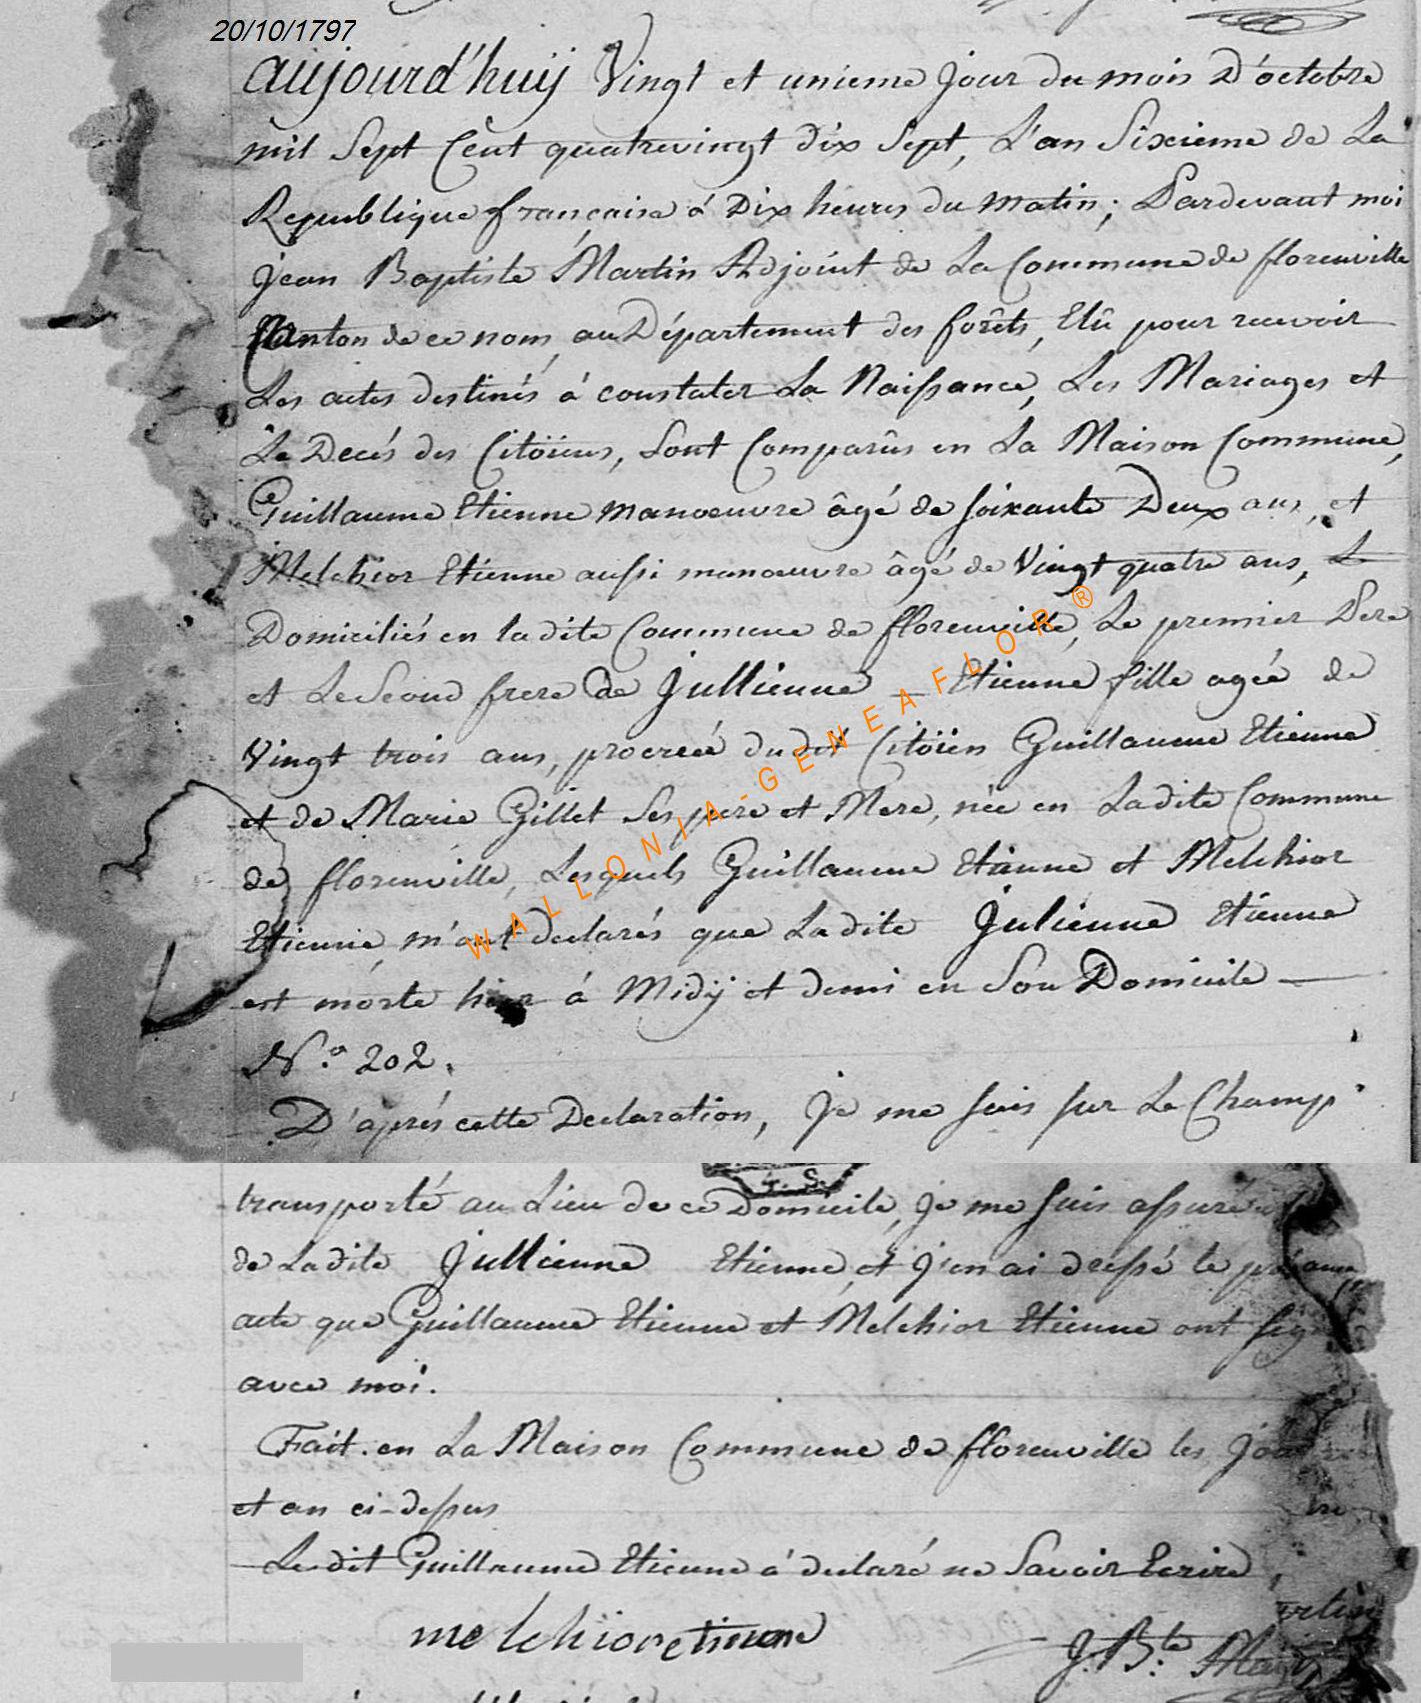 20/10/1797
aujourd'huÿ Vingt et unieme jour du mois D'octobre
mil Sept Cent quatrevingt dix Sept, L'an Sixieme de La
Republique française à Dix heures du matin; Pardevant moi
Jean Baptiste Martin Adjoint de La Commune de florenville
Canton de ce nom, au Département des forêts, Elû pour recevoir
Les actes destinés à constater La Naissance, Les Mariages et
Le Decés des Citöiens, Sont Comparûs en La Maison Commune,
Guillaume Etienne manoeuvre âgé de soixante Deux ans, et
Melchior Etienne aussi manoeuvre âgé de Vingt quatre ans,
Domiciliés en ladite Commune de florenville, Le premier Pere
et Le Second frere de Jullienne - Etienne fille agée de
Vingt trois ans, procreée dudit Citöien Guillaume Etienne
et de Marie Gillet Ses pere et Mere, née en Ladite Commune
de florenville, Lesquels Guillaume Etienne et Melchior
Etienne, m'ont declarés que Ladite Julienne Etienne
est morte hier à Midÿ et demi en Son Domicile —
N.º 202.
D'aprés cette Declaration, Je me suis sur Le Champ
transporté au Lieu de ce Domicile, je me suis assuré
de Ladite Jullienne Etienne, et j'en ai dressé le
acte que Guillaume Etienne et Melchior Etienne ont
avec moi.
Fait en La Maison Commune de florenville les
et an ci-dessus
Le dit Guillaume Etienne à declaré ne Savoir Ecrire,
melchior etienne
J. B.te Martin
WALLONIA-GENEAFLOR ®